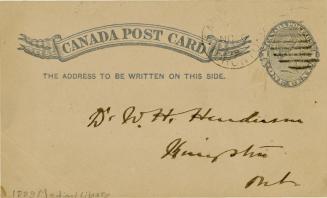 CANADA POST CARD
THE ADDRESS TO BE WRITTEN ON THIS SIDE.
Dr. W. H. Henderson
Kingston
Ont.